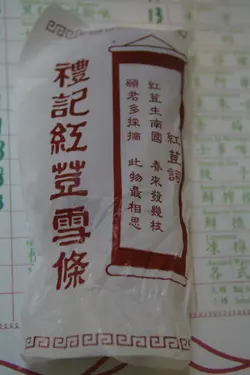 紅荳詞
紅荳生南國 春來發幾枝
願君多採摘 此物最相思
禮記紅荳雪條
13